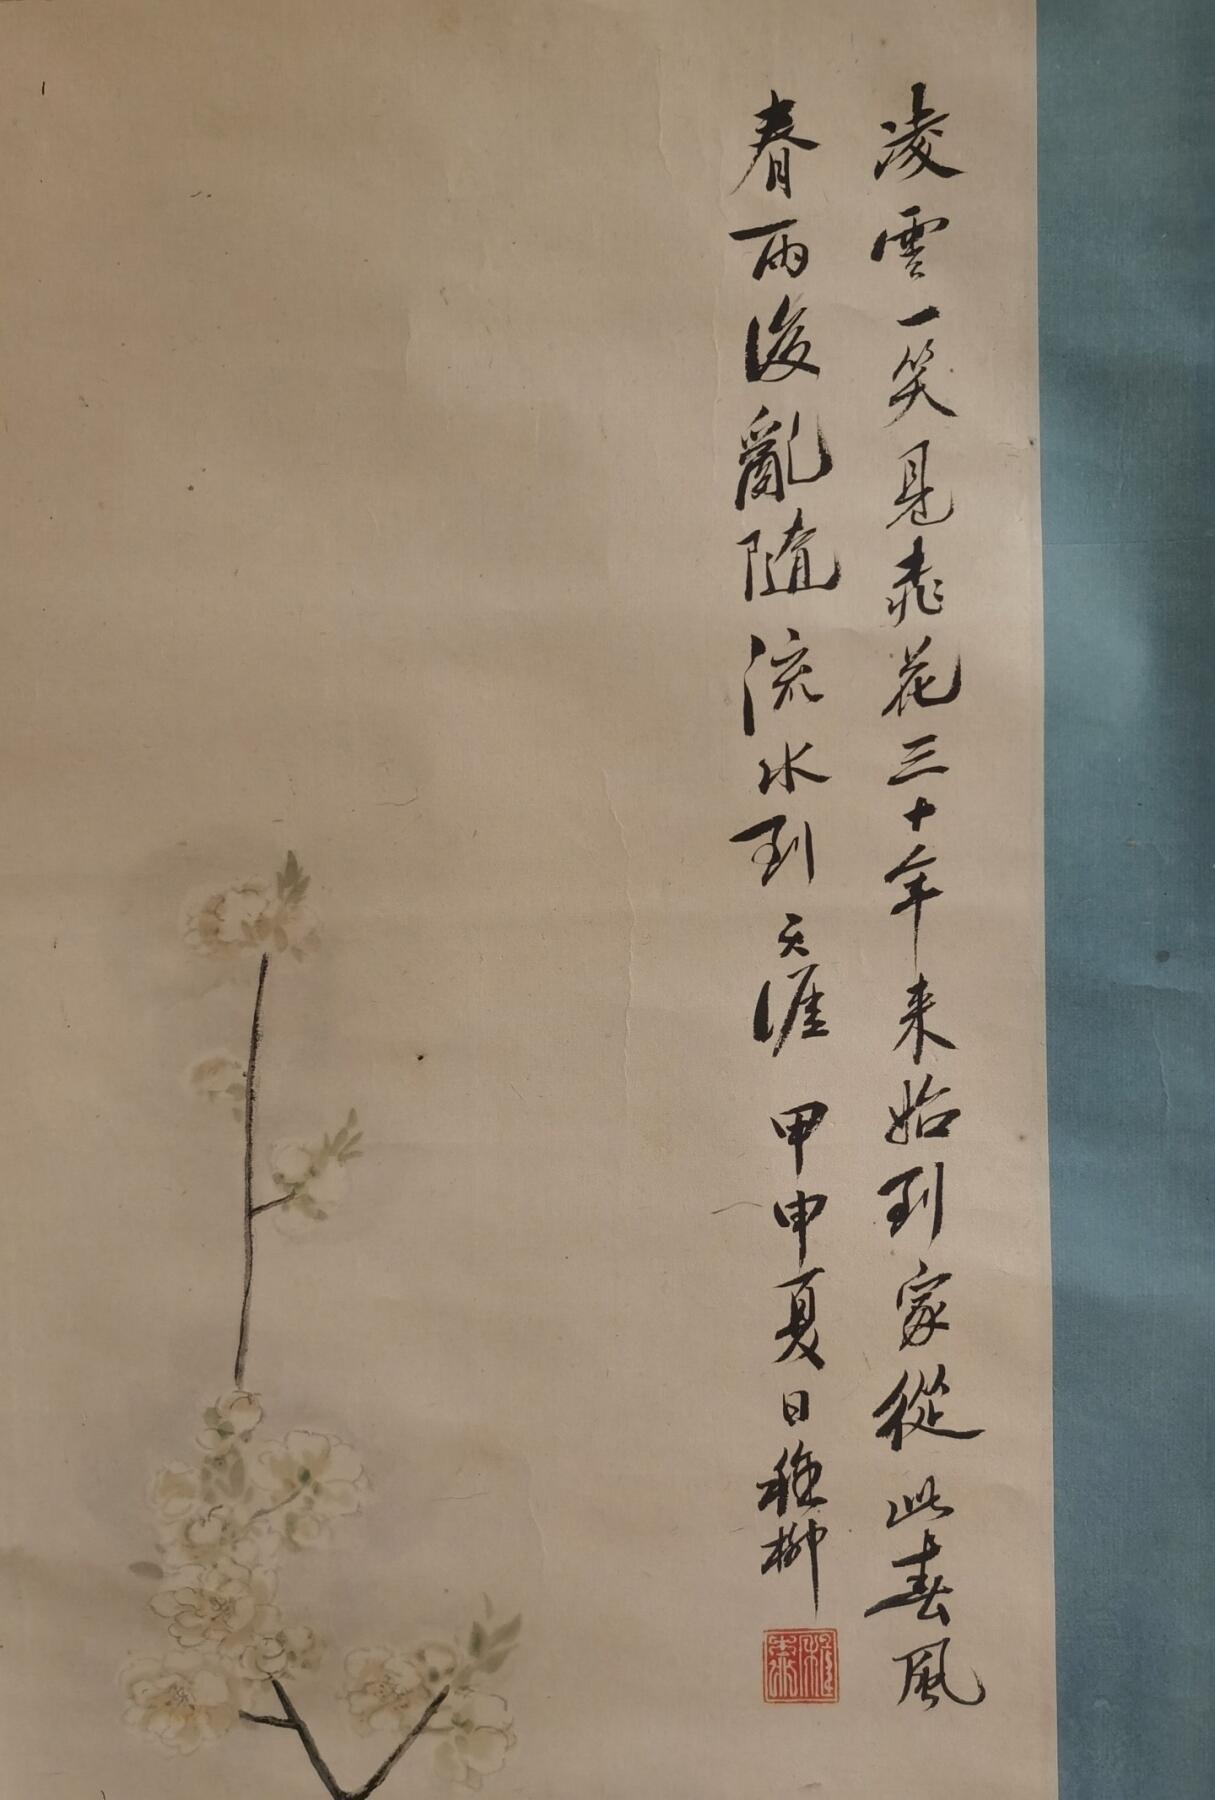 凌雲一笑見桃花三十年来始到家從此春風
春雨後亂隨流水到天涯 甲申夏日稚柳